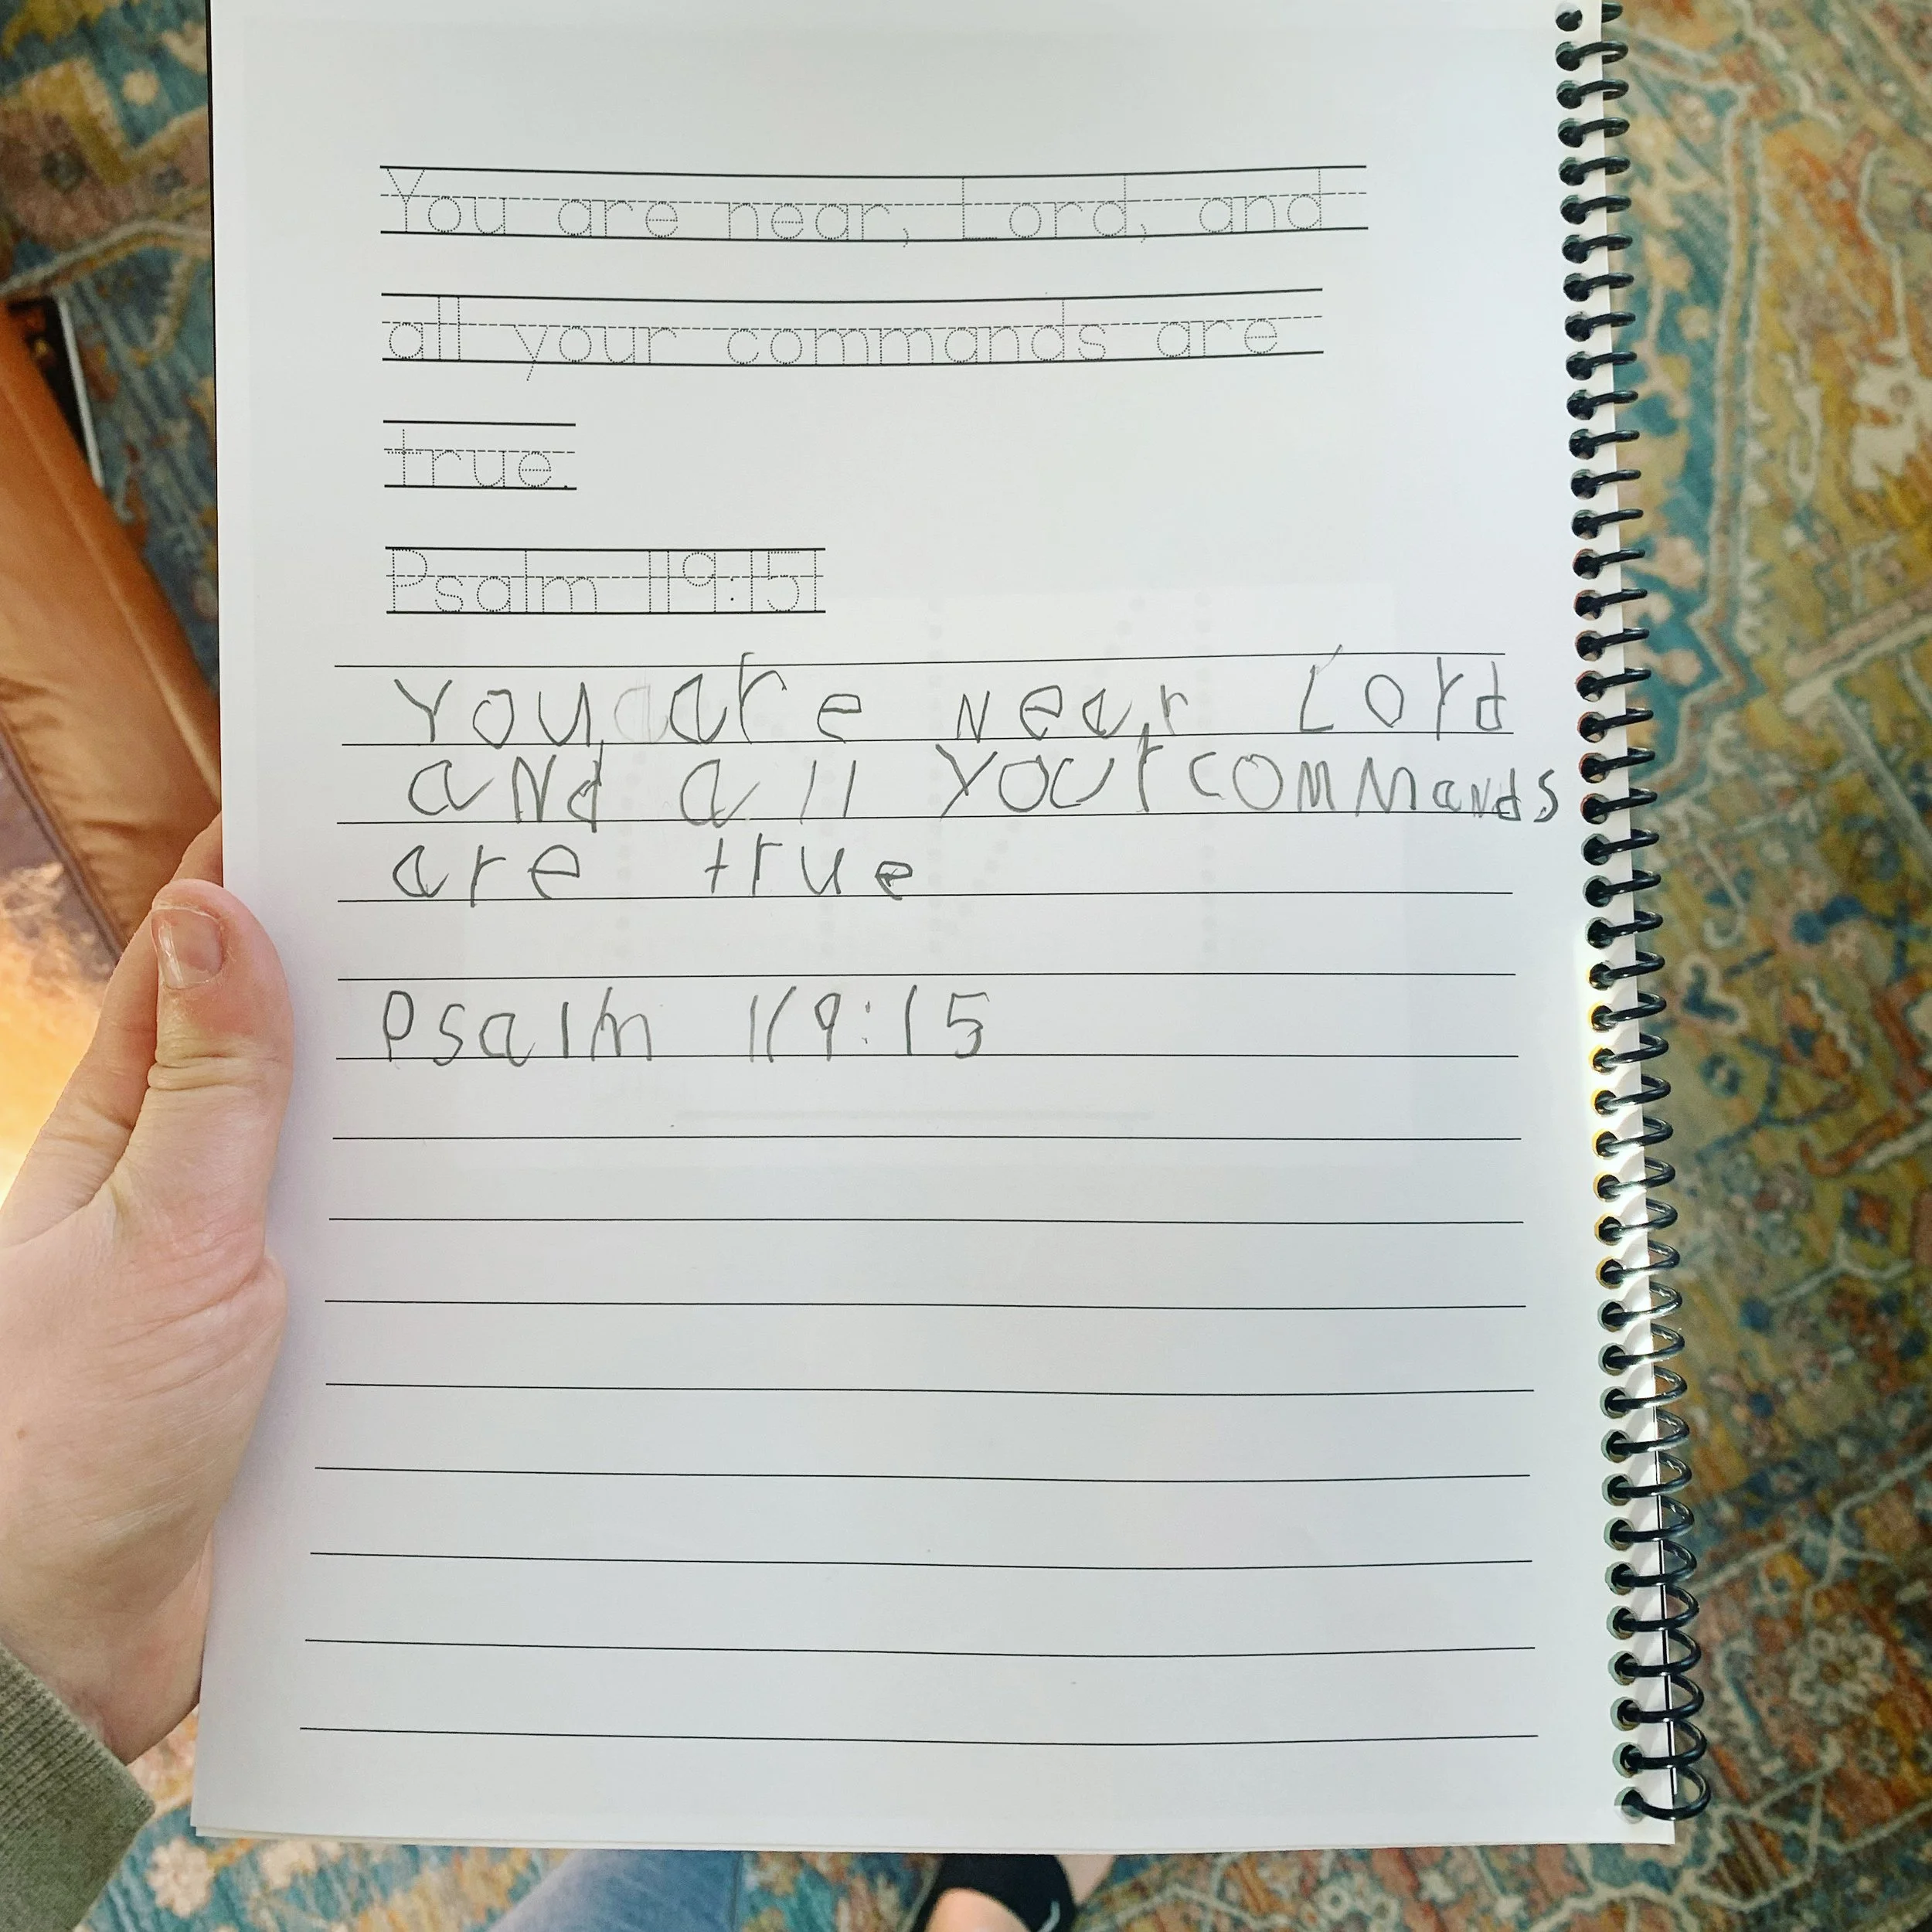 You are near, Lord, and
all your commands are
true.
Psalm 119:151
You, are Near Lord
aNd all YOur comMaNds
are true
Psalm 119:15